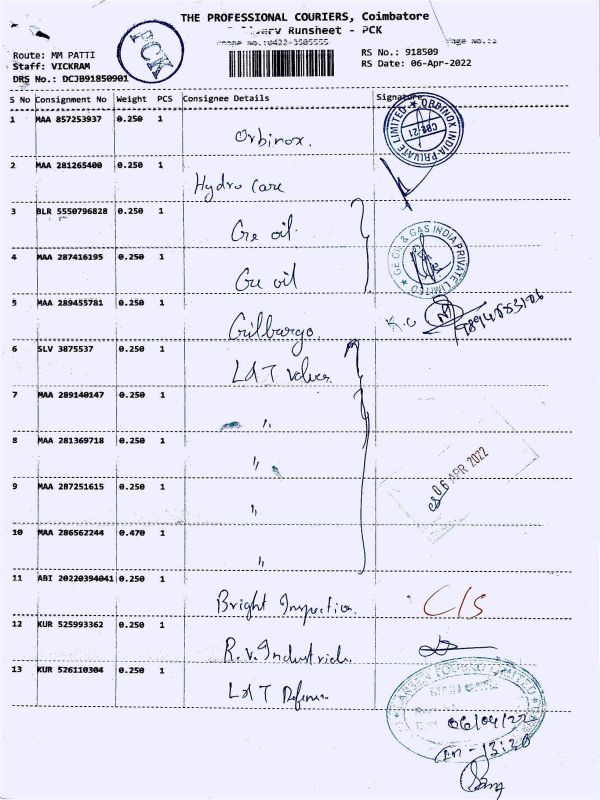 THE PROFESSIONAL COURIERS, Coimbatore
Runsheet - PCK
Phone No.:0422-3505555
Page No.:1
PCK
Route: MM PATTI
Staff: VICKRAM
DRS No.: DCJB91850901
RS No.: 918509
RS Date: 06-Apr-2022
S No Consignment No Weight PCS Consignee Details Signature
1 MAA 857253937 0.250 1 Orbinox.
ORBINOX INDIA PRIVATE LIMITED
CBE-21
2 MAA 281265400 0.250 1 Hydro Care
3 BLR 5550796828 0.250 1 Ge oil
4 MAA 287416195 0.250 1 Ge oil
GE OIL & GAS INDIA PRIVATE LIMITED
5 MAA 289455781 0.250 1 Gilbargo.
6 SLV 3875537 0.250 1 L&T Valves.
7 MAA 289140147 0.250 1 "
8 MAA 281369718 0.250 1 "
06 APR 2022
9 MAA 287251615 0.250 1 "
10 MAA 286562244 0.470 1 "
11 ABI 20220394041 0.250 1 Bright Inspection. C/S
12 KUR 525993362 0.250 1 R.V. Industrials
13 KUR 526110304 0.250 1 L&T Defence
MAIN GATE
06/04/22
13:30